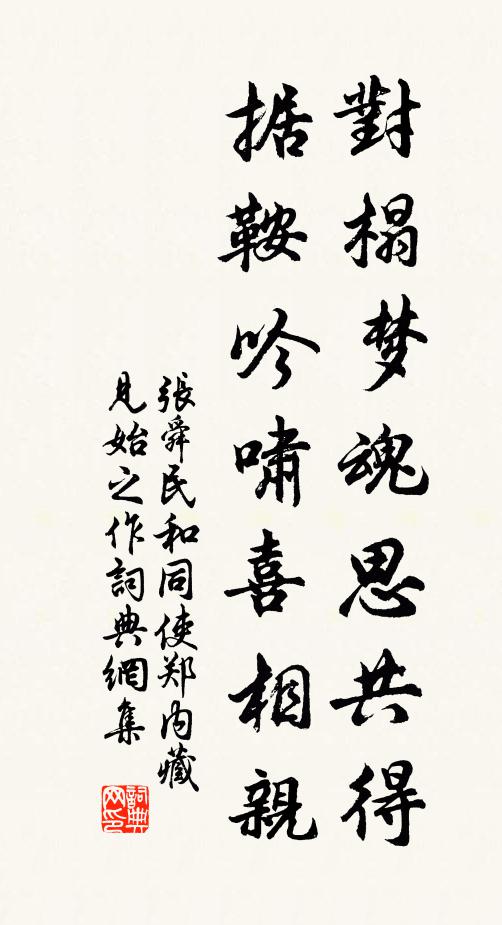 對榻梦魂思共得
据鞍吟啸喜相親
張舜民和同使郑内藏
見始之作詞典網集
詞典网印